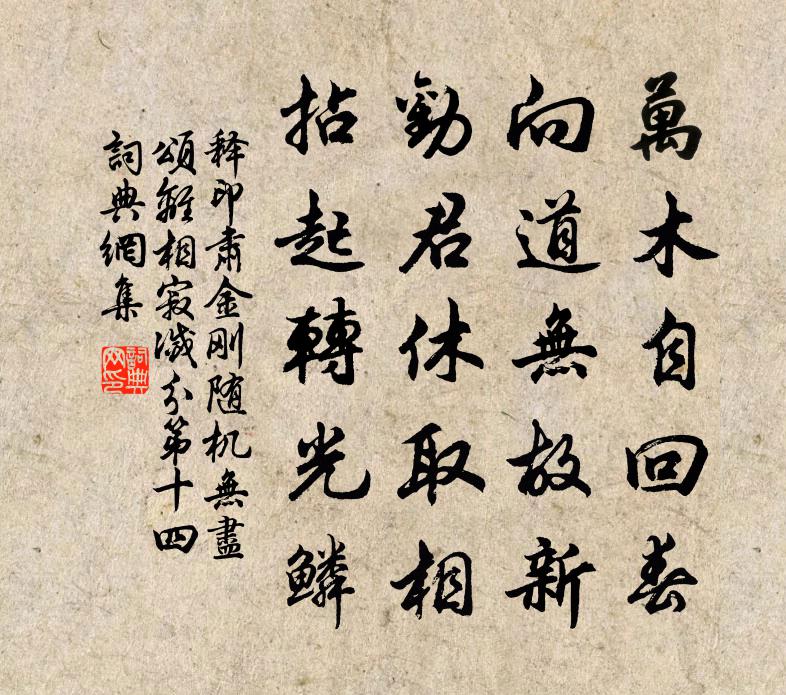 萬木自回春
向道無故新
勸君休取相
拈起轉光鱗
释印肅金刚随机無盡
頌離相寂滅分第十四
詞典網集
詞典网印